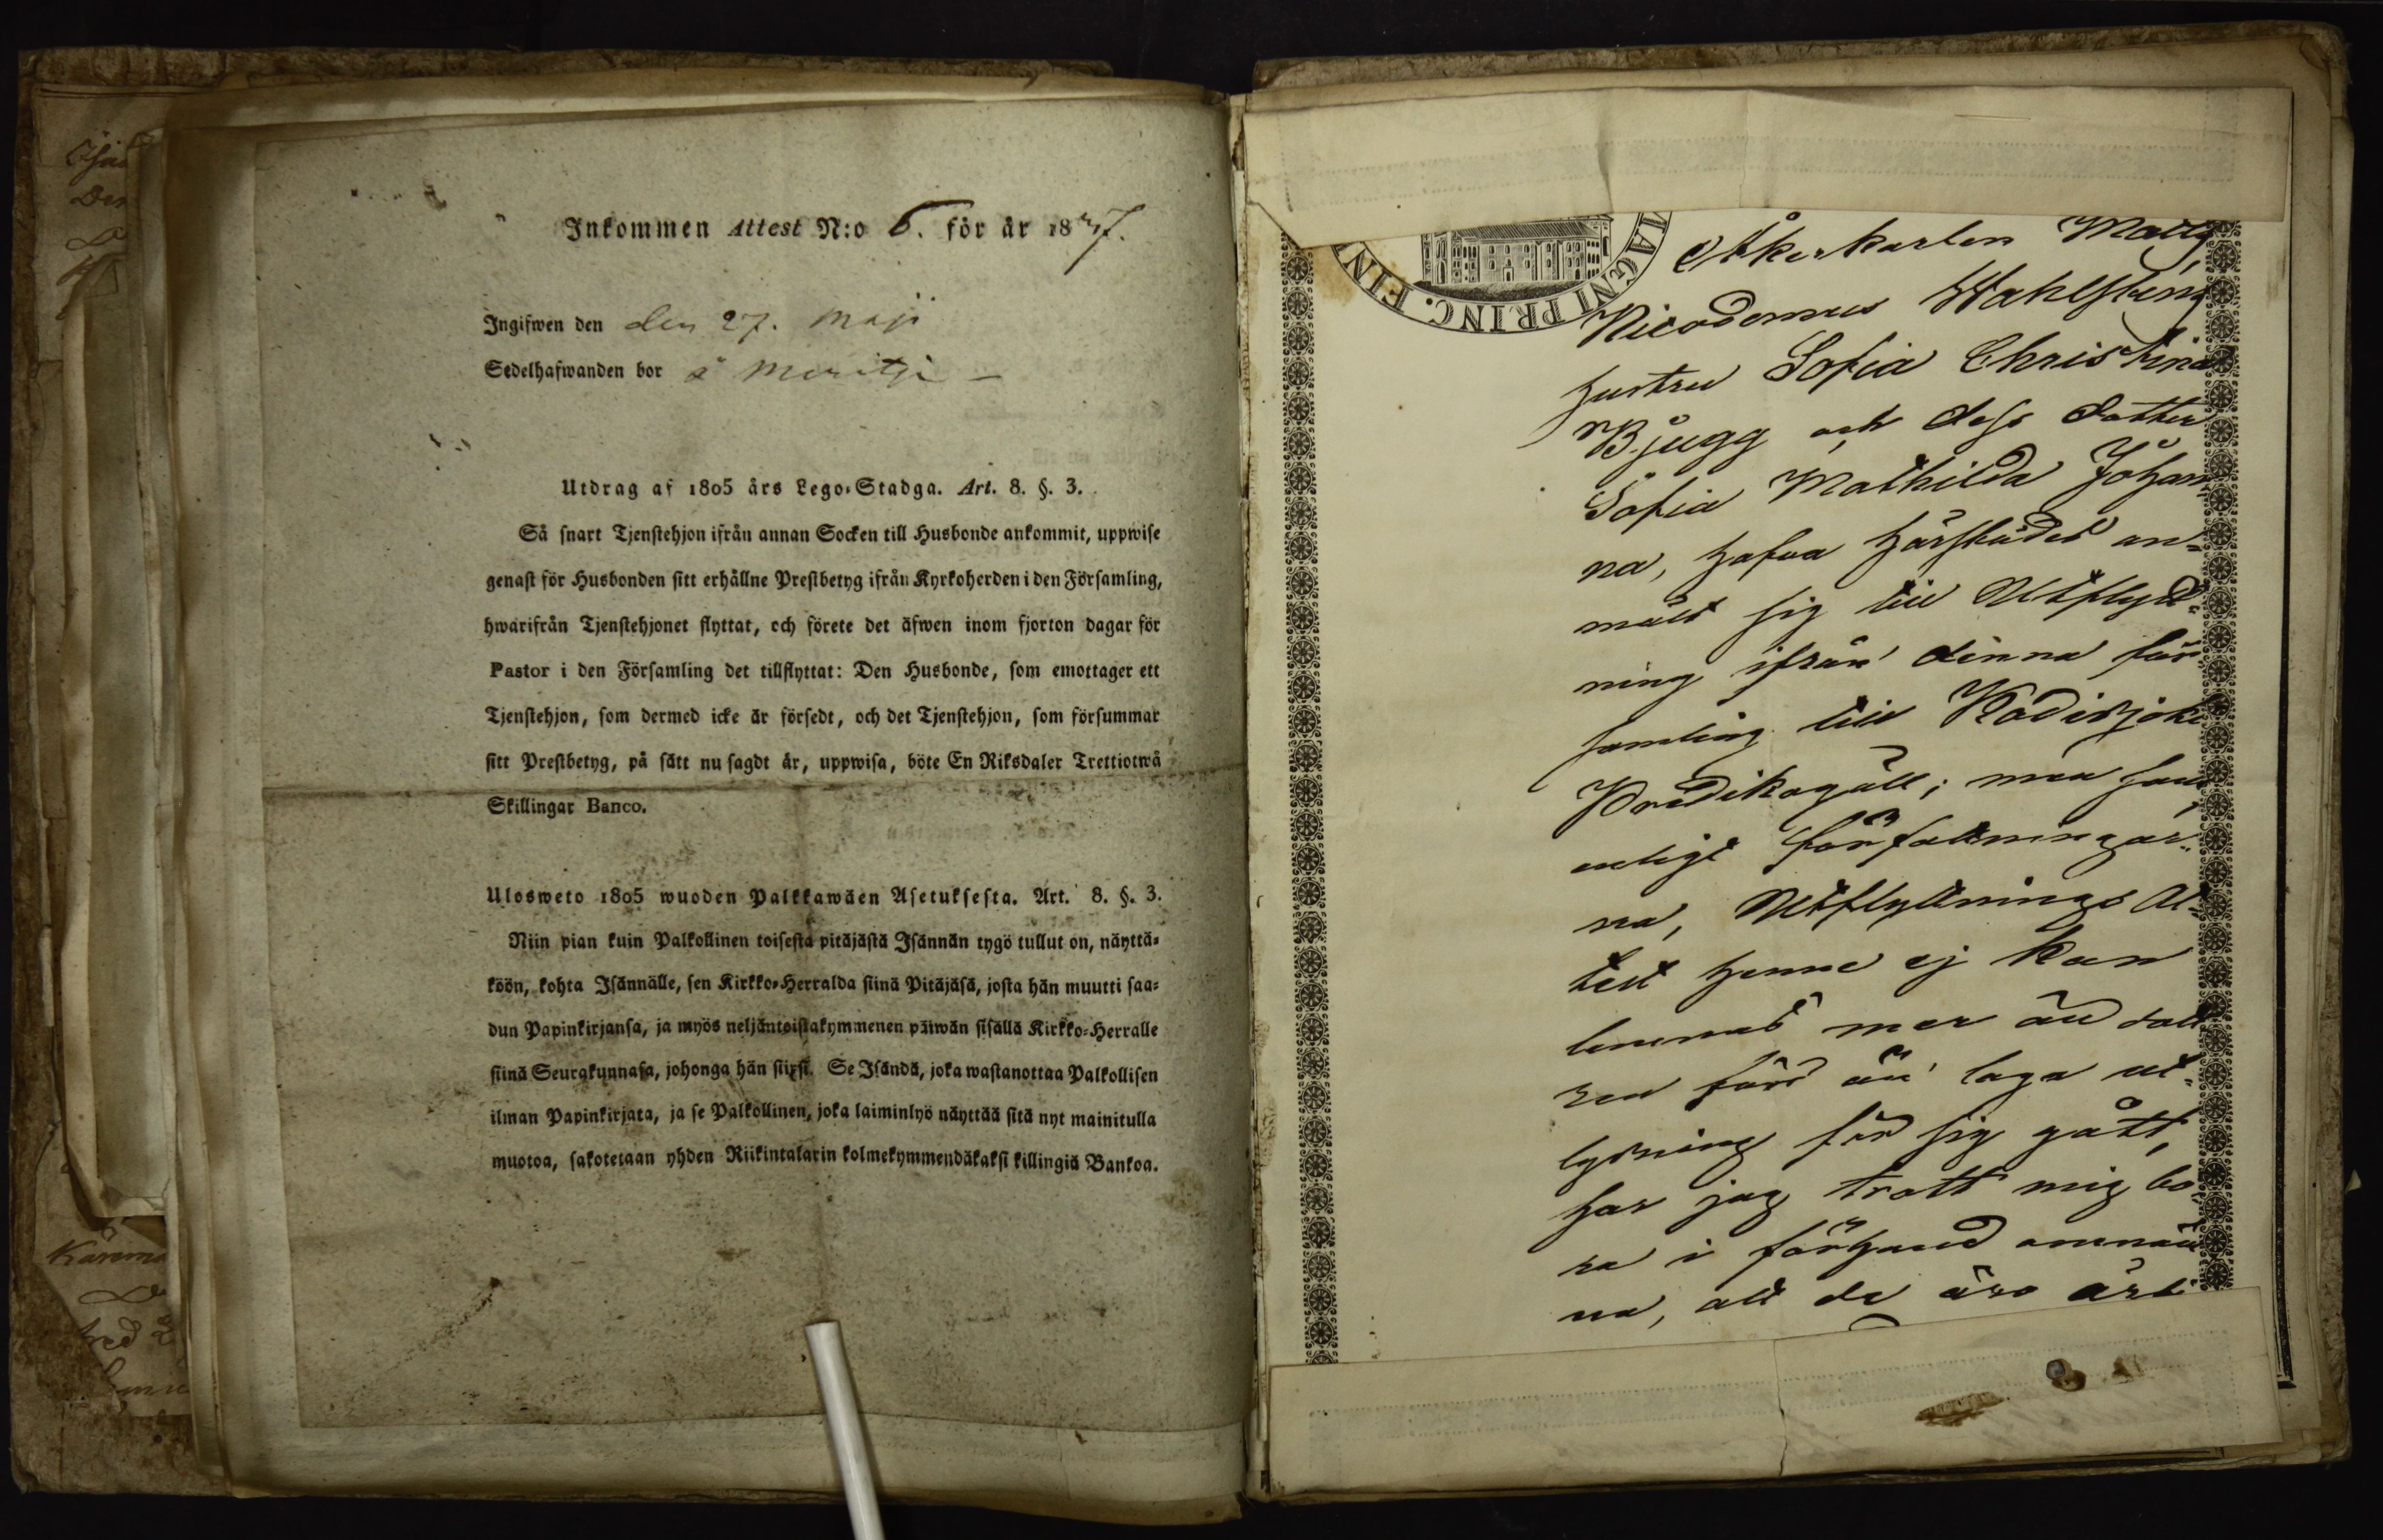 Inkommen Attest N:o 6. för år 1847.
Ingifwen den den 27. Maji
Sedelhafwanden bor å Meritji
Utdrag af 1805 års Lego-Stadga. Art. 8. §. 3.
Så snart Tjenstehjon ifrån annan Socken till Husbonde ankommit, uppwise
genast för Husbonden sitt erhållne Prestbetyg ifrån Kyrkoherden i den Församling,
hwarifrån Tjenstehjonet flyttat, och förete det äfwen inom fjorton dagar för
Pastor i den Församling det tillflyttat: Den Husbonde, som emottager ett
Tjenstehjon, som dermed icke är försedt, och det Tjenstehjon, som försummar
sitt Prestbetyg, på sätt nu sagdt är, uppwisa, böte En Riksdaler Trettiotwå
Skillingar Banco.
Ulosweto 1805 wuoden Palkkawäen Asetuksesta. Art. 8. §. 3.
Niin pian kuin Palkollinen toisesta pitäjästä Isännän tygö tullut on, näyttä-
köön, kohta Isännälle, sen Kirkko-Herralda siinä Pitäjäsä, josta hän muutti saa-
dun Papinkirjansa, ja myös neljäntoistakymmenen päiwän sisällä Kirkko-Herralle
siinä Seurakunnasa, johonga hän siirsi. Se Isändä, joka wastanottaa Palkollisen
ilman Papinkirjata, ja se Palkollinen, joka laiminlyö näyttää sitä nyt mainitulla
muotoa, sakotetaan yhden Riikintalarin kolmekymmendäkaksi killingiä Bankoa.
MAGNI PRINC. FIN
Åkerkarlen Matts
Nicodemus Wahlsten,
hustru Sofia Christina
Bjugg och dess dotter
Sofia Mathilda Johan-
na, hafva härstädes an-
mält sig till Utflytt-
ning ifrån denna för-
samling till Kädisjoki
Predikogäll; men som
enligt författningar-
na, Utflyttnings At-
test henne ej kan
lemnas mer än dott-
ren förr än laga ut-
lysning för sig gått,
har jag trott mig bo-
ra i förhand omnäm-
na, att de äro